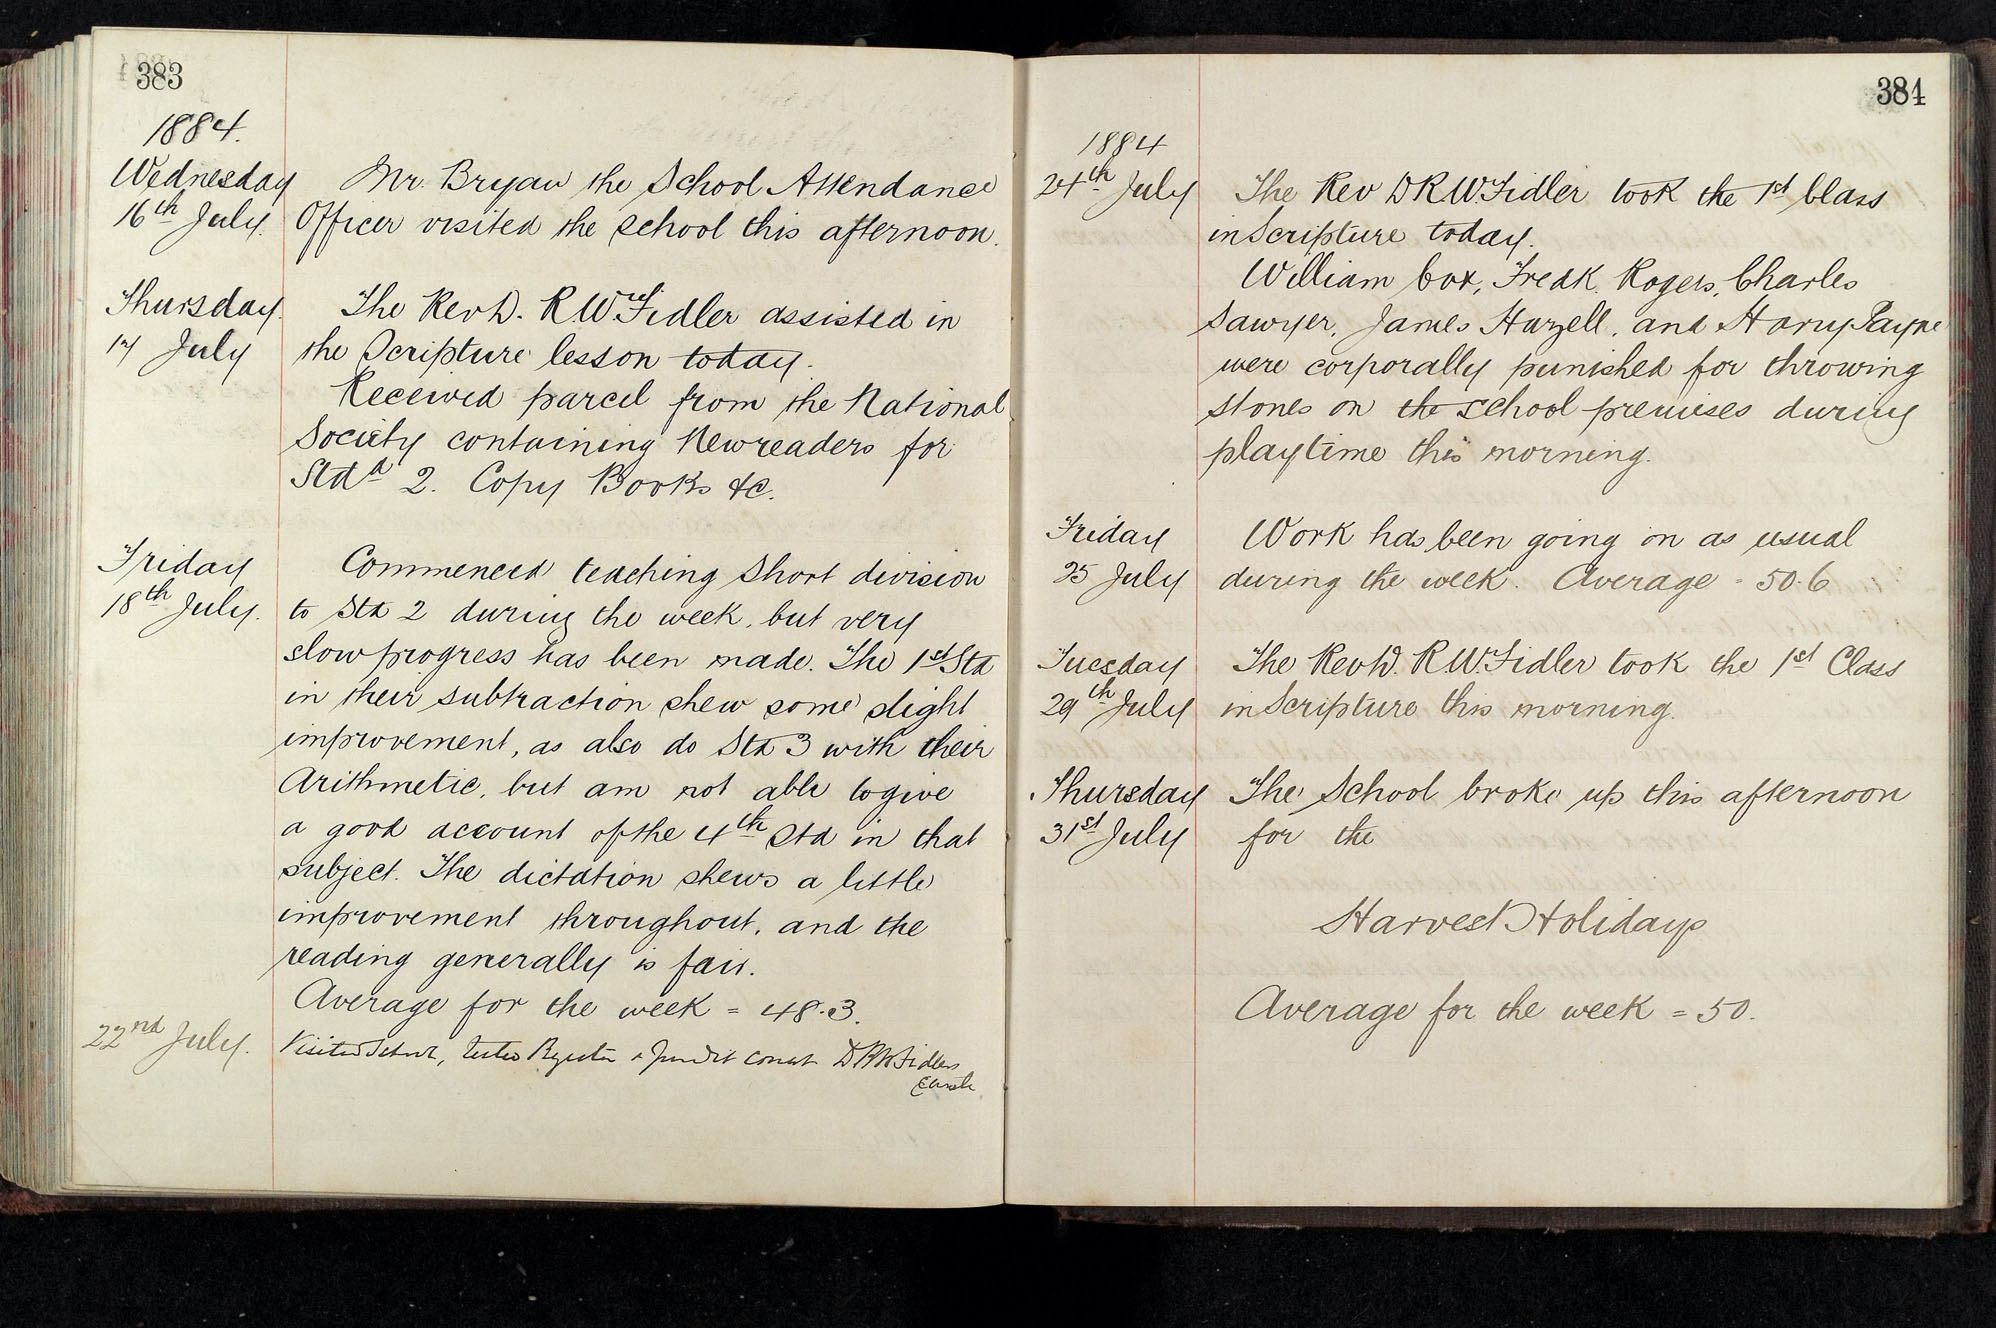 383
1884.
Wednesday
16th July.
Mr. Bryan the School Attendance
Officer visited the school this afternoon.
Thursday.
17 July
The Rev D. R W. Fidler assisted in
the Scripture lesson today.
Received parcel from the National
Society containing New readers for
Stdd 2. Copy Books &c.
Friday
18th July.
Commenced teaching Short division
to Std 2 during the week, but very
slow progress has been made. The 1st Std
in their subtraction shew some slight
improvement, as also do Std 3 with their
Arithmetic, but am not able to give
a good account of the 4th Std in that
subject. The dictation shews a little
improvement throughout, and the
reading generally is fair.
Average for the week = 48.3.
22nd July.
Visited School, tested Register & found it correct D R W Fidler
384
1884
24th July
The Rev D R W. Fidler took the 1st Class
in Scripture today.
William Cox, Fredk. Rogers, Charles
Sawyer, James Hazell, and Harry Payne
were corporally punished for throwing
stones on the school premises during
playtime this morning.
Friday
25 July
Work has been going on as usual
during the week. Average = 50.6
Tuesday
29th July
The Rev D. R W. Fidler took the 1st Class
in Scripture this morning.
Thursday
31st July
The School broke up this afternoon
for the
Harvest Holidays
Average for the week = 50.